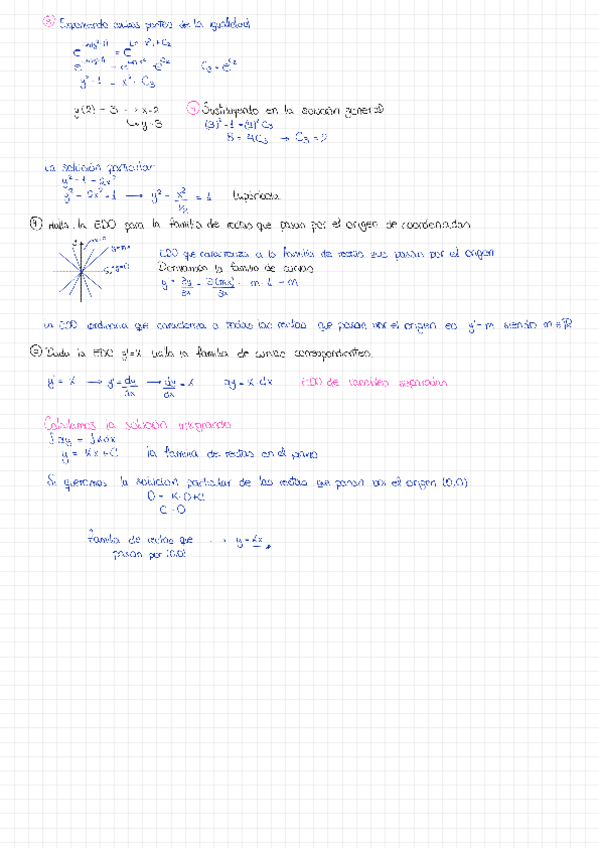 ③ Exponiendo ambas partes de la igualdad
C₃ = e^C₂
y² - 1 = x² · C₃
y(2) = 3 → x = 2
↳ y = 3
④ Sustituyendo en la solución general
(3)² - 1 = (2)² C₃
8 = 4C₃ → C₃ = 2
La solución particular
y² - 1 = 2x²
y² - 2x² = 1 → y² - x²/½ = 1 hipérbola
① Halla la EDO para la familia de rectas que pasan por el origen de coordenadas
EDO que caracteriza a la familia de rectas que pasan por el origen
Derivamos la familia de curvas
La EDO ordinaria que caracteriza a todas las rectas que pasan por el origen es y' = m siendo m ∈ ℝ
② Dada la EDO y' = K halla la familia de curvas correspondientes
y' = K → y' = dy/dx → dy/dx = K dy = K dx EDO de variables separables
Calculamos la solución integrando
∫dy = ∫K dx
y = Kx + C la familia de rectas en el plano
Si queremos la solución particular de las rectas que pasan por el origen (0,0)
0 = K · 0 + C
C = 0
familia de rectas que → y = Kx
pasan por (0,0)